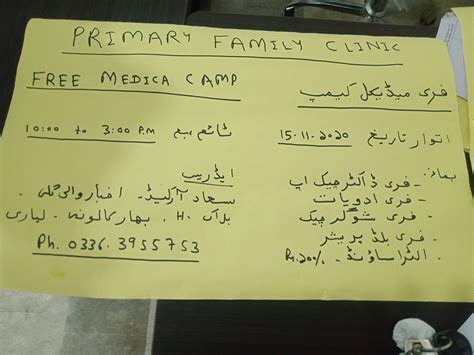 PRIMARY FAMILY CLINIC
FREE MEDICA CAMP
فری میڈیکل کیمپ
اتوار تاریخ 15.11.2020
ٹائم صبح 10:00 to 3:00 P.M
- فری ڈاکٹر چیک اپ
- فری ادویات
- فری شوگر چیک
- فری بلڈ پریشر
- الٹراساؤنڈ
ایڈریس
سعاد آرکیڈ۔ اخبار والی گلی۔
بلاک H۔ بہار کالونی۔ لیاری
Ph. 0336.3955753